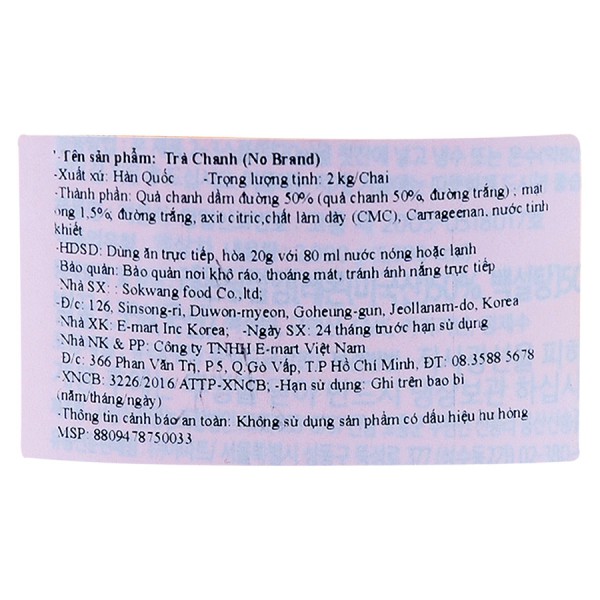 -Tên sản phẩm: Trà Chanh (No Brand)
-Xuất xứ: Hàn Quốc -Trọng lượng tịnh: 2 kg/Chai
-Thành phần: Quả chanh dầm đường 50% (quả chanh 50%, đường trắng) ; mật
ong 1,5%, đường trắng, axit citric,chất làm dày (CMC), Carrageenan, nước tinh
khiết
-HDSD: Dùng ăn trực tiếp, hòa 20g với 80 ml nước nóng hoặc lạnh
-Bảo quản: Bảo quản nơi khô ráo, thoáng mát, tránh ánh nắng trực tiếp
Nhà SX: : Sokwang food Co.,ltd;
-Đ/c: 126, Sinsong-ri, Duwon-myeon, Goheung-gun, Jeollanam-do, Korea
-Nhà XK: E-mart Inc Korea; -Ngày SX: 24 tháng trước hạn sử dụng
-Nhà NK & PP: Công ty TNHH E-mart Việt Nam
Đ/c: 366 Phan Văn Trị, P.5, Q.Gò Vấp, T.P Hồ Chí Minh, ĐT: 08.3588 5678
-XNCB: 3226/2016/ATTP-XNCB; -Hạn sử dụng: Ghi trên bao bì
(năm/tháng/ngày)
-Thông tin cảnh báo an toàn: Không sử dụng sản phẩm có dấu hiệu hư hỏng
MSP: 8809478750033